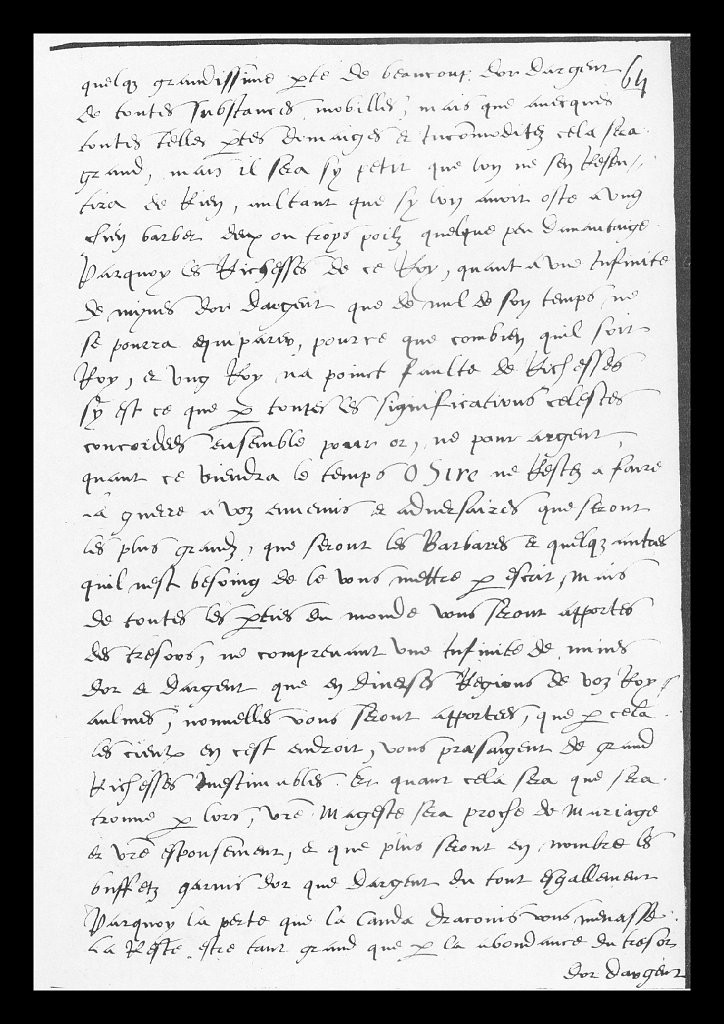 64
quelq3 grandissime perte de beaucoup dor dargent
de toutes substances mobilles, mais que avecques
toutes telles pertes domaiges et Incommoditez cela sera
grand, mais il sera sy petit que lon ne sen Resen-
tira de Rien, aultant que sy lon avoit oste a ung
chien barbet deux ou troys poilz quelque peu davantaige
Parquoy les Richesses de ce Roy, quant a une Infinite
de mynes dor dargent que de nul de son temps ne
se pourra comparer, pource que combien quil soit
Roy, et Ung Roy na poinct faulte de Richesses
sy est ce que par toutes les significations celestes
concordees ensemble pour or, ne pour argent,
quant ce viendra le temps O Sire ne Restez a faire
la guere a voz ennemis et adversaires que seront
les plus grandz, que seront les Barbares et quelqz autres
quil nest besoing de le vous mettre par escrit, Mais
de toutes les parties du monde vous seront apportes
des tresors, ne comprenant une Infinite de mines
dor et dargent que en diverses Regions de voz Roy
aulmes, nouvelles vous seront apportees, que par cela
les cieulx en cest endroit, vous præsaigent de grand
Richesses Inestimables. Et quant cela sera que sera
trouve par lors, vre Mageste sera proche de Mariage
et vre espousement, et que plus seront en nombre les
buffetz garnis dor que dargent du tout eshallement
Parquoy la perte que la Cauda draconis vous menasse
La Reste estre tant grand que par la abondance du tresor
dor dargent